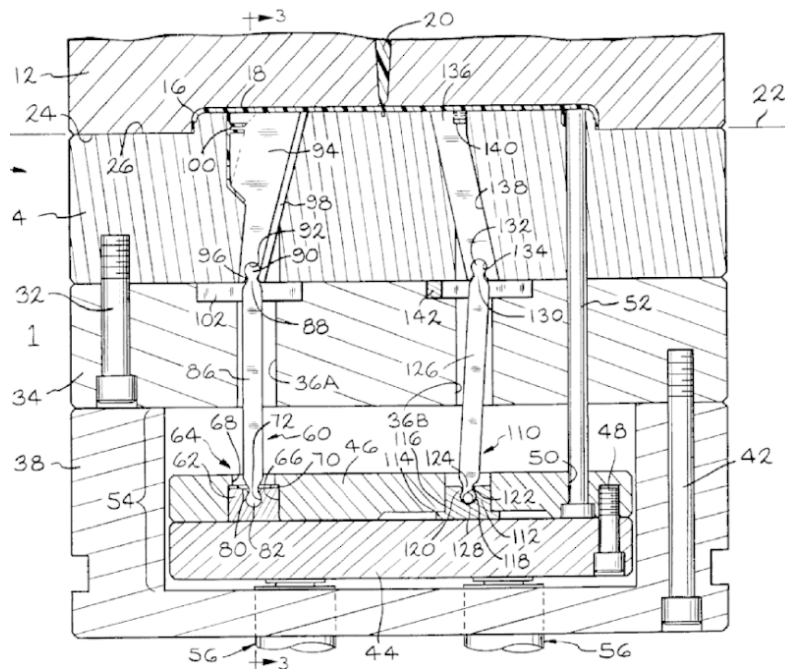 3
20
12
18
136
22
16
24
26
100
94
140
138
4
98
92
132
96
90
134
32
102
88
142
130
52
1
86
36A
126
34
36B
72
68
60
116
110
48
38
64
66
70
46
114
124
50
42
54
62
122
80
82
120
128
112
118
56
44
56
3